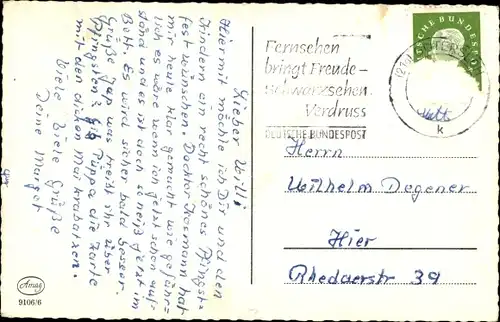 Lieber Willi
Hiermit möchte ich Dir und den
Kindern ein recht schönes Pfingst-
fest wünschen. Doctor Kosmann hat
mir heute klar gemacht wie gefähr-
lich es wäre wenn ich jetzt schon auf-
stand und es ist doch so heiß jetzt im
Bett. Es wird sicher bald besser.
Grüße Jup was treibt ihr über
Pfingsten? Gib Puppa die Karte
mit den dicken Markrabatzen.
Viele Viele Grüße
Deine Margot
Amag
9106/6
Fernsehen
bringt Freude -
Schwarzsehen
Verdruss
DEUTSCHE BUNDESPOST
DEUTSCHE BUNDESPOST
k
Herrn
Wilhelm Degener
Hier
Rhedaerstr 39